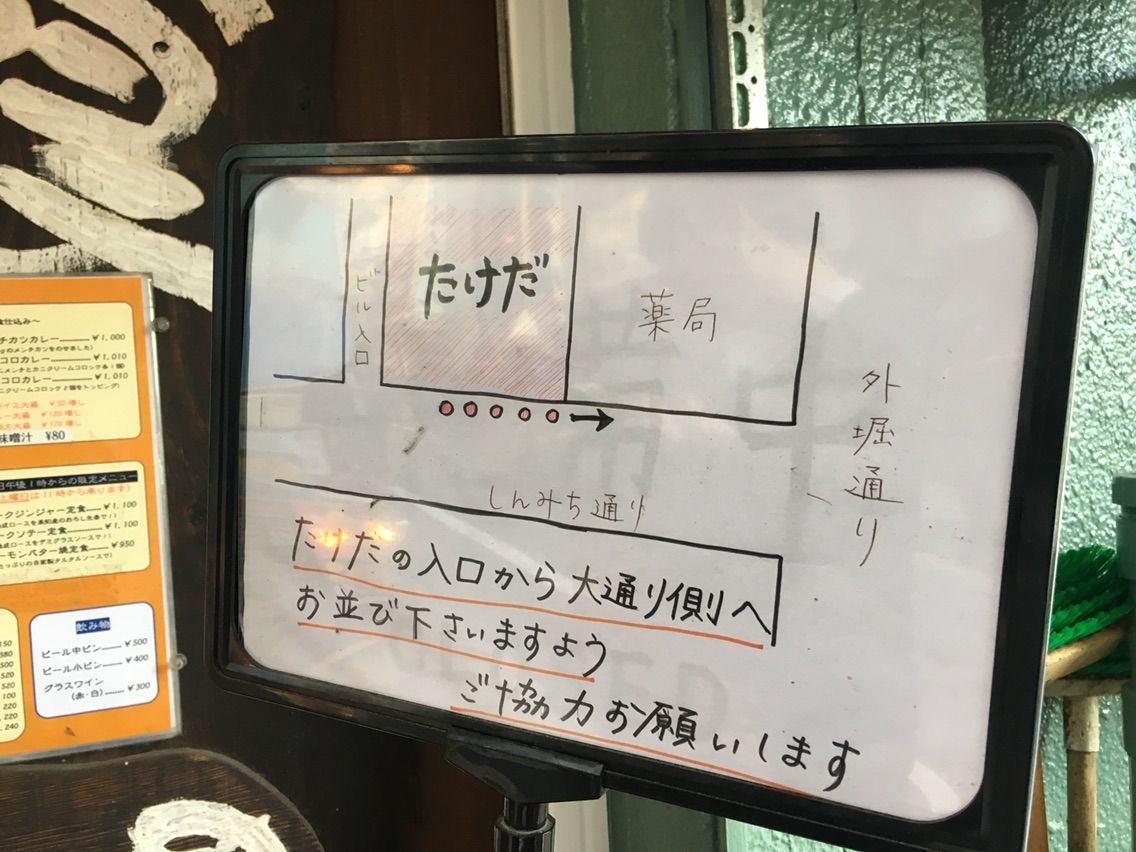 たけだ
ビル入口
薬局
外堀通り
しんみち通り
たけだの入口から大通り側へ
お並び下さいますよう
ご協力お願いします
チカツカレー ¥1,000
コロカレー ¥1,010
コロカレー ¥1,010
味噌汁 ¥80
日午後1時からの限定メニュー
土曜日は11時から承ります)
ークジンジャー定食 ¥1,100
ークソテー定食 ¥1,100
ーモンバター焼定食 ¥950
飲み物
ビール中ビン ¥500
ビール小ビン ¥400
グラスワイン
(赤・白) ¥300